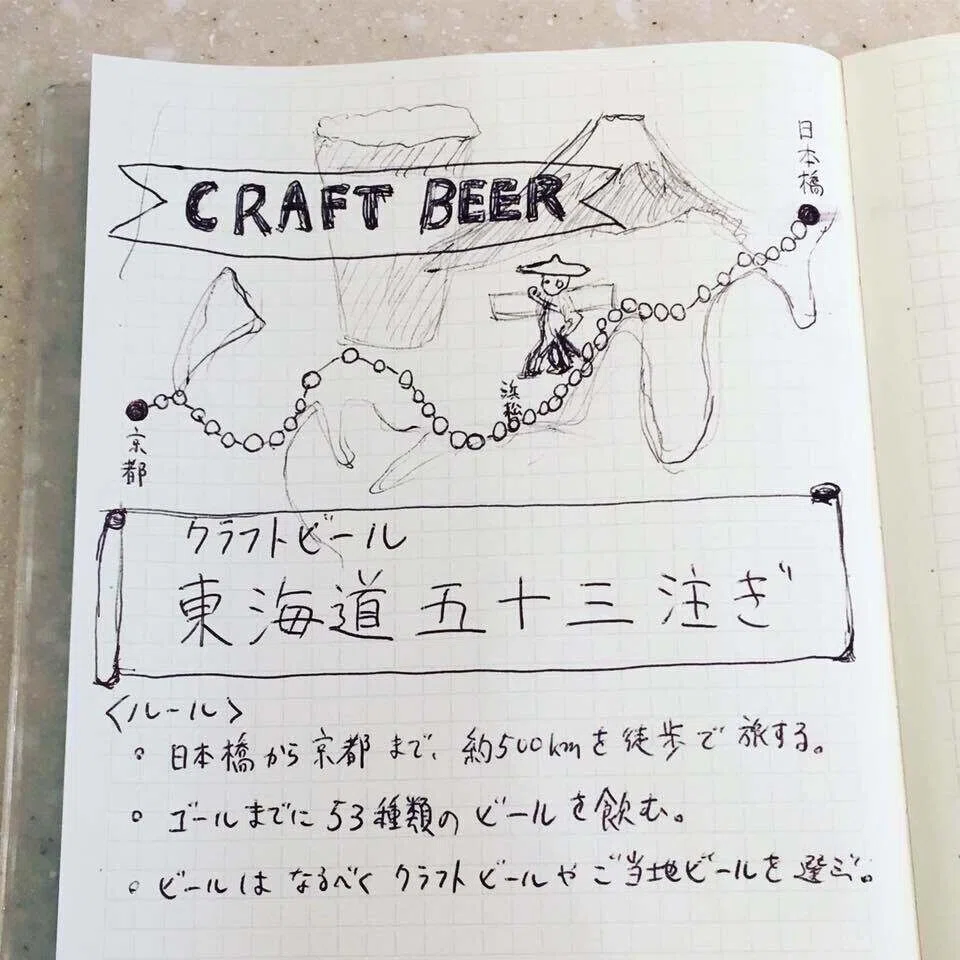 CRAFT BEER
日本橋
浜松
京都
クラフトビール
東海道五十三注ぎ
〈ルール〉
。日本橋から京都まで、約500kmを徒歩で旅する。
。ゴールまでに53種類のビールを飲む。
。ビールはなるべくクラフトビールやご当地ビールを選ぶ。